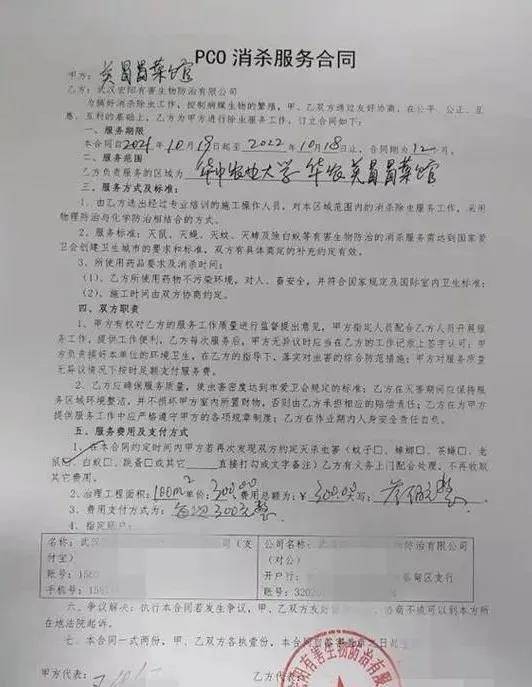 PCO 消杀服务合同
甲方：英昌昌菜馆
乙方：武汉宏阳有害生物防治有限公司
为搞好消杀除虫工作，控制病媒生物的繁殖，甲、乙双方透过友好协商，在公平、公正、互
惠、互利的基础上，乙方为甲方进行除虫服务工作，订立合同如下：
一、服务期限
本合同自2021年10月19日起至2022年10月18日止，合同期为12个月。
二、服务范围
乙方负责服务的区域为 华中农业大学 华农英昌昌菜馆
三、服务方式及标准：
1、由乙方选出经过专业培训的施工操作人员，对本区域范围内的消杀除虫服务工作，采用
物理防治与化学防治相结合的方式。
2、服务标准：灭鼠、灭蝇、灭蚊、灭蟑及除白蚁等有害生物防治的消杀服务需达到国家爱
卫会创建卫生城市的要求和标准，双方有具体商定的补充约定有效。
3、所使用药品要求及消杀时间：
（1）、乙方所使用药物不污染环境，对人、畜安全，并符合国家规定及国际室内卫生标准；
（2）、施工时间由双方协商约定。
四、双方职责
1、甲方有权对乙方的服务工作质量进行监督提出意见，甲方指定人员配合乙方人员开展服
务工作，提供工作便利，乙方每次服务后，甲方无异议时应当在乙方的工作记录上签字认可；甲
方负责搞好本单位的环境卫生，在乙方的指导下，落实对虫害的综合防范措施；甲方对服务质量
无异议情况下按时足额支付服务费。
2、乙方应确保服务质量，使虫害密度达到市爱卫会规定的标准；乙方在灭害期间应保持服
务区域环境整洁，并不损坏甲方室内所置财物，否则由乙方承担相应的赔偿责任；乙方在为甲方
提供服务工作中应严格遵守甲方的各项规章制度；乙方在作业期内人身安全责任自负。
五、服务费用及支付方式
1、在本合同约定时间内甲方若再次发现双方约定灭杀虫害（蚊子□、蟑螂□、苍蝇□、老
鼠□、白蚁□、跳蚤□或其它＿＿直接打勾或文字备注）乙方有义务上门配合处理，不再收取
其它费用。
2、治理工程面积：100m²单价：300.00 费用总额为：￥300.00大写：叁佰元整
3、费用支付方式为：每次300元整
4、指定账户：
名称：武汉 司（支
付宝）
账号：156
手机号：156
公司名称： 防治有限公司
（对公）
开户行： 蔡甸区支行
账号：3202
六、争议解决：执行本合同若发生争议，甲、乙双方友好 协商不成可以到本方所
在地法院起诉。
七、本合同一式两份，甲、乙双方各执壹份，本合同自签字 之日起
甲方代表： 乙方代表：
阳有害生物防治有限